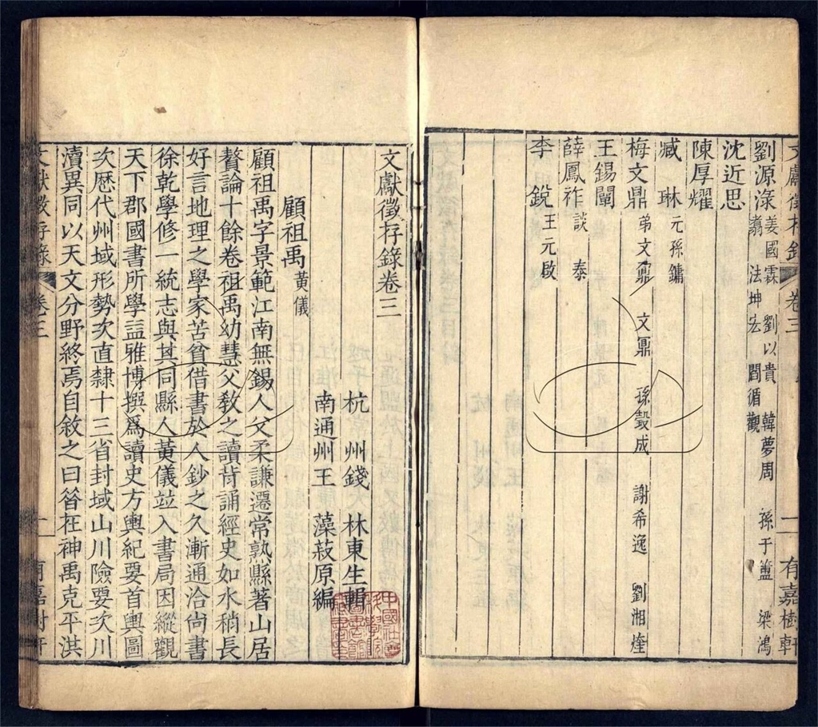 文獻徵存錄 卷三 一 有嘉樹軒
劉源淥 姜國霖 劉以貴 韓夢周 孫于盤 梁鴻翥 法坤宏 閻循觀
沈近思
陳厚耀
臧琳 元孫鏞
梅文鼎 弟文鼐 文鼏 孫瑴成 謝希逸 劉湘煃
王錫闡
薛鳳祚 談泰
李銳 王元啟
文獻徵存錄卷三
杭州錢 林東生輯
南通州王 藻菽原編
顧祖禹 黃儀
顧祖禹字景範江南無錫人父柔謙遷常熟縣著山居
贅論十餘卷祖禹幼慧父敎之讀背誦經史如水稍長
好言地理之學家苦貧借書於人鈔之久漸通洽尙書
徐乾學修一統志與其同縣人黃儀竝入書局因縱觀
天下郡國書所學益雅博撰爲讀史方輿紀要首輿圖
次歷代州域形勢次直隸十三省封域山川險要次川
瀆異同以天文分野終焉自敘之曰昝在神禹克平洪
文獻徵存錄 卷三 一 有嘉樹軒